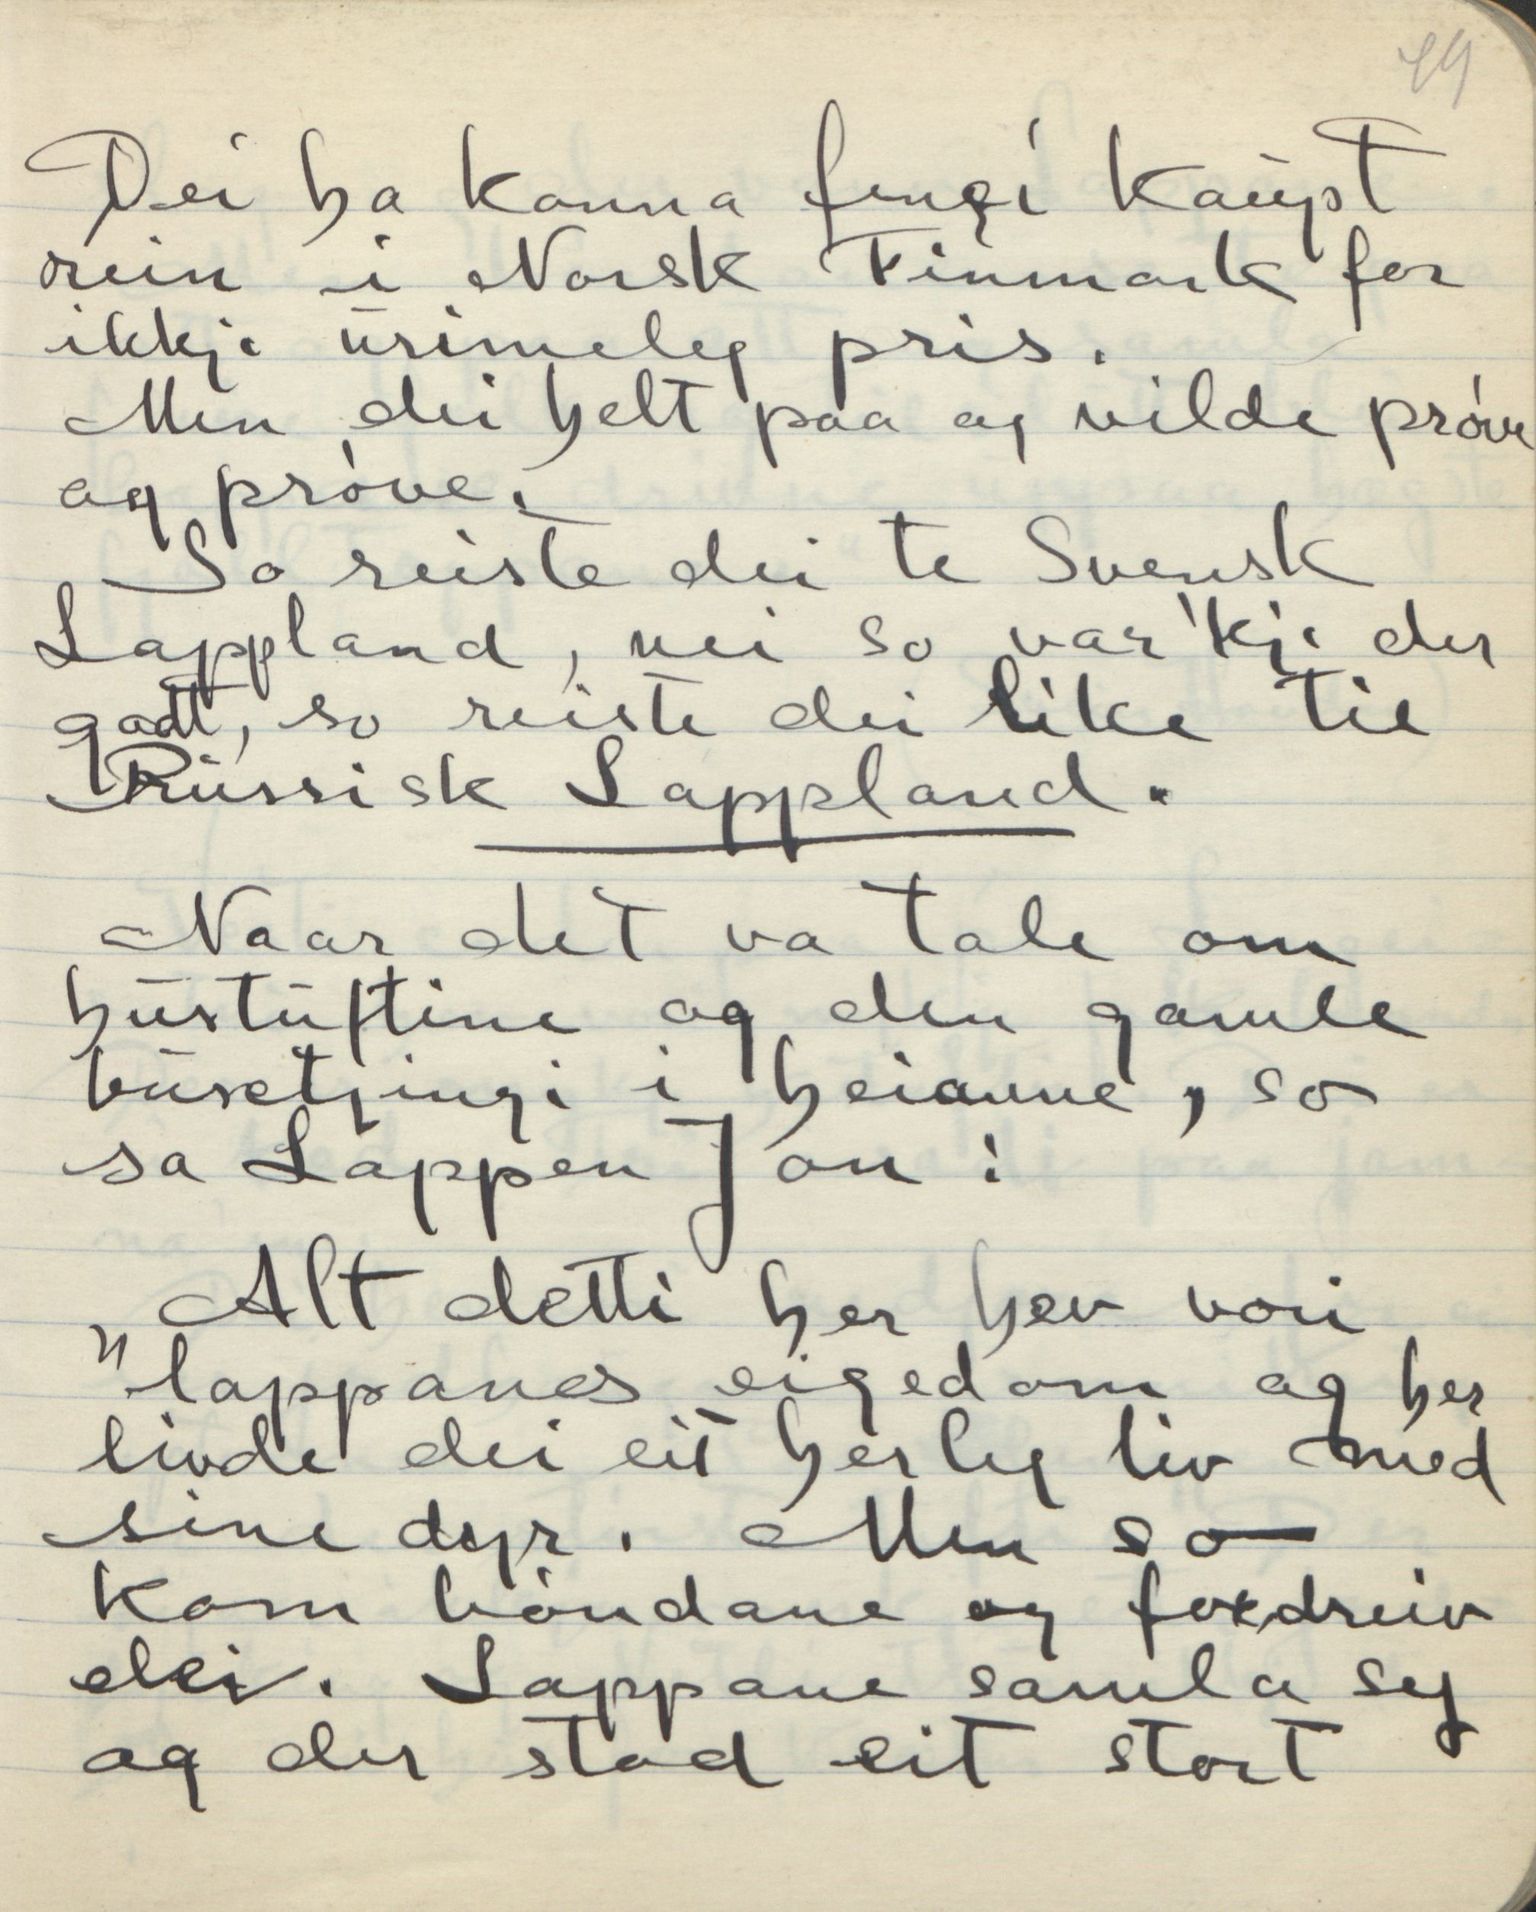 Dei ha kanna fengi kaupt
rein i Norsk Finmark for
ikkje urimeleg pris.
Men dei helt paa og vilde prøve
og prøve.
So reiste dei te Svensk
Lappland, nei so var'kje der
godt, so reiste dei like til
Russisk Lappland.
Naar det va tale om
hustuftine og den gamle
busetjingi i heianne, so
sa Lappen Jon:
Alt detti her hev vori
"lappanes eigedom og her
livde dei eit herleg liv med
sine dyr. Men so
kom bóndane og fordreiv
dei. Lappane samla seg
og der stod eit stort